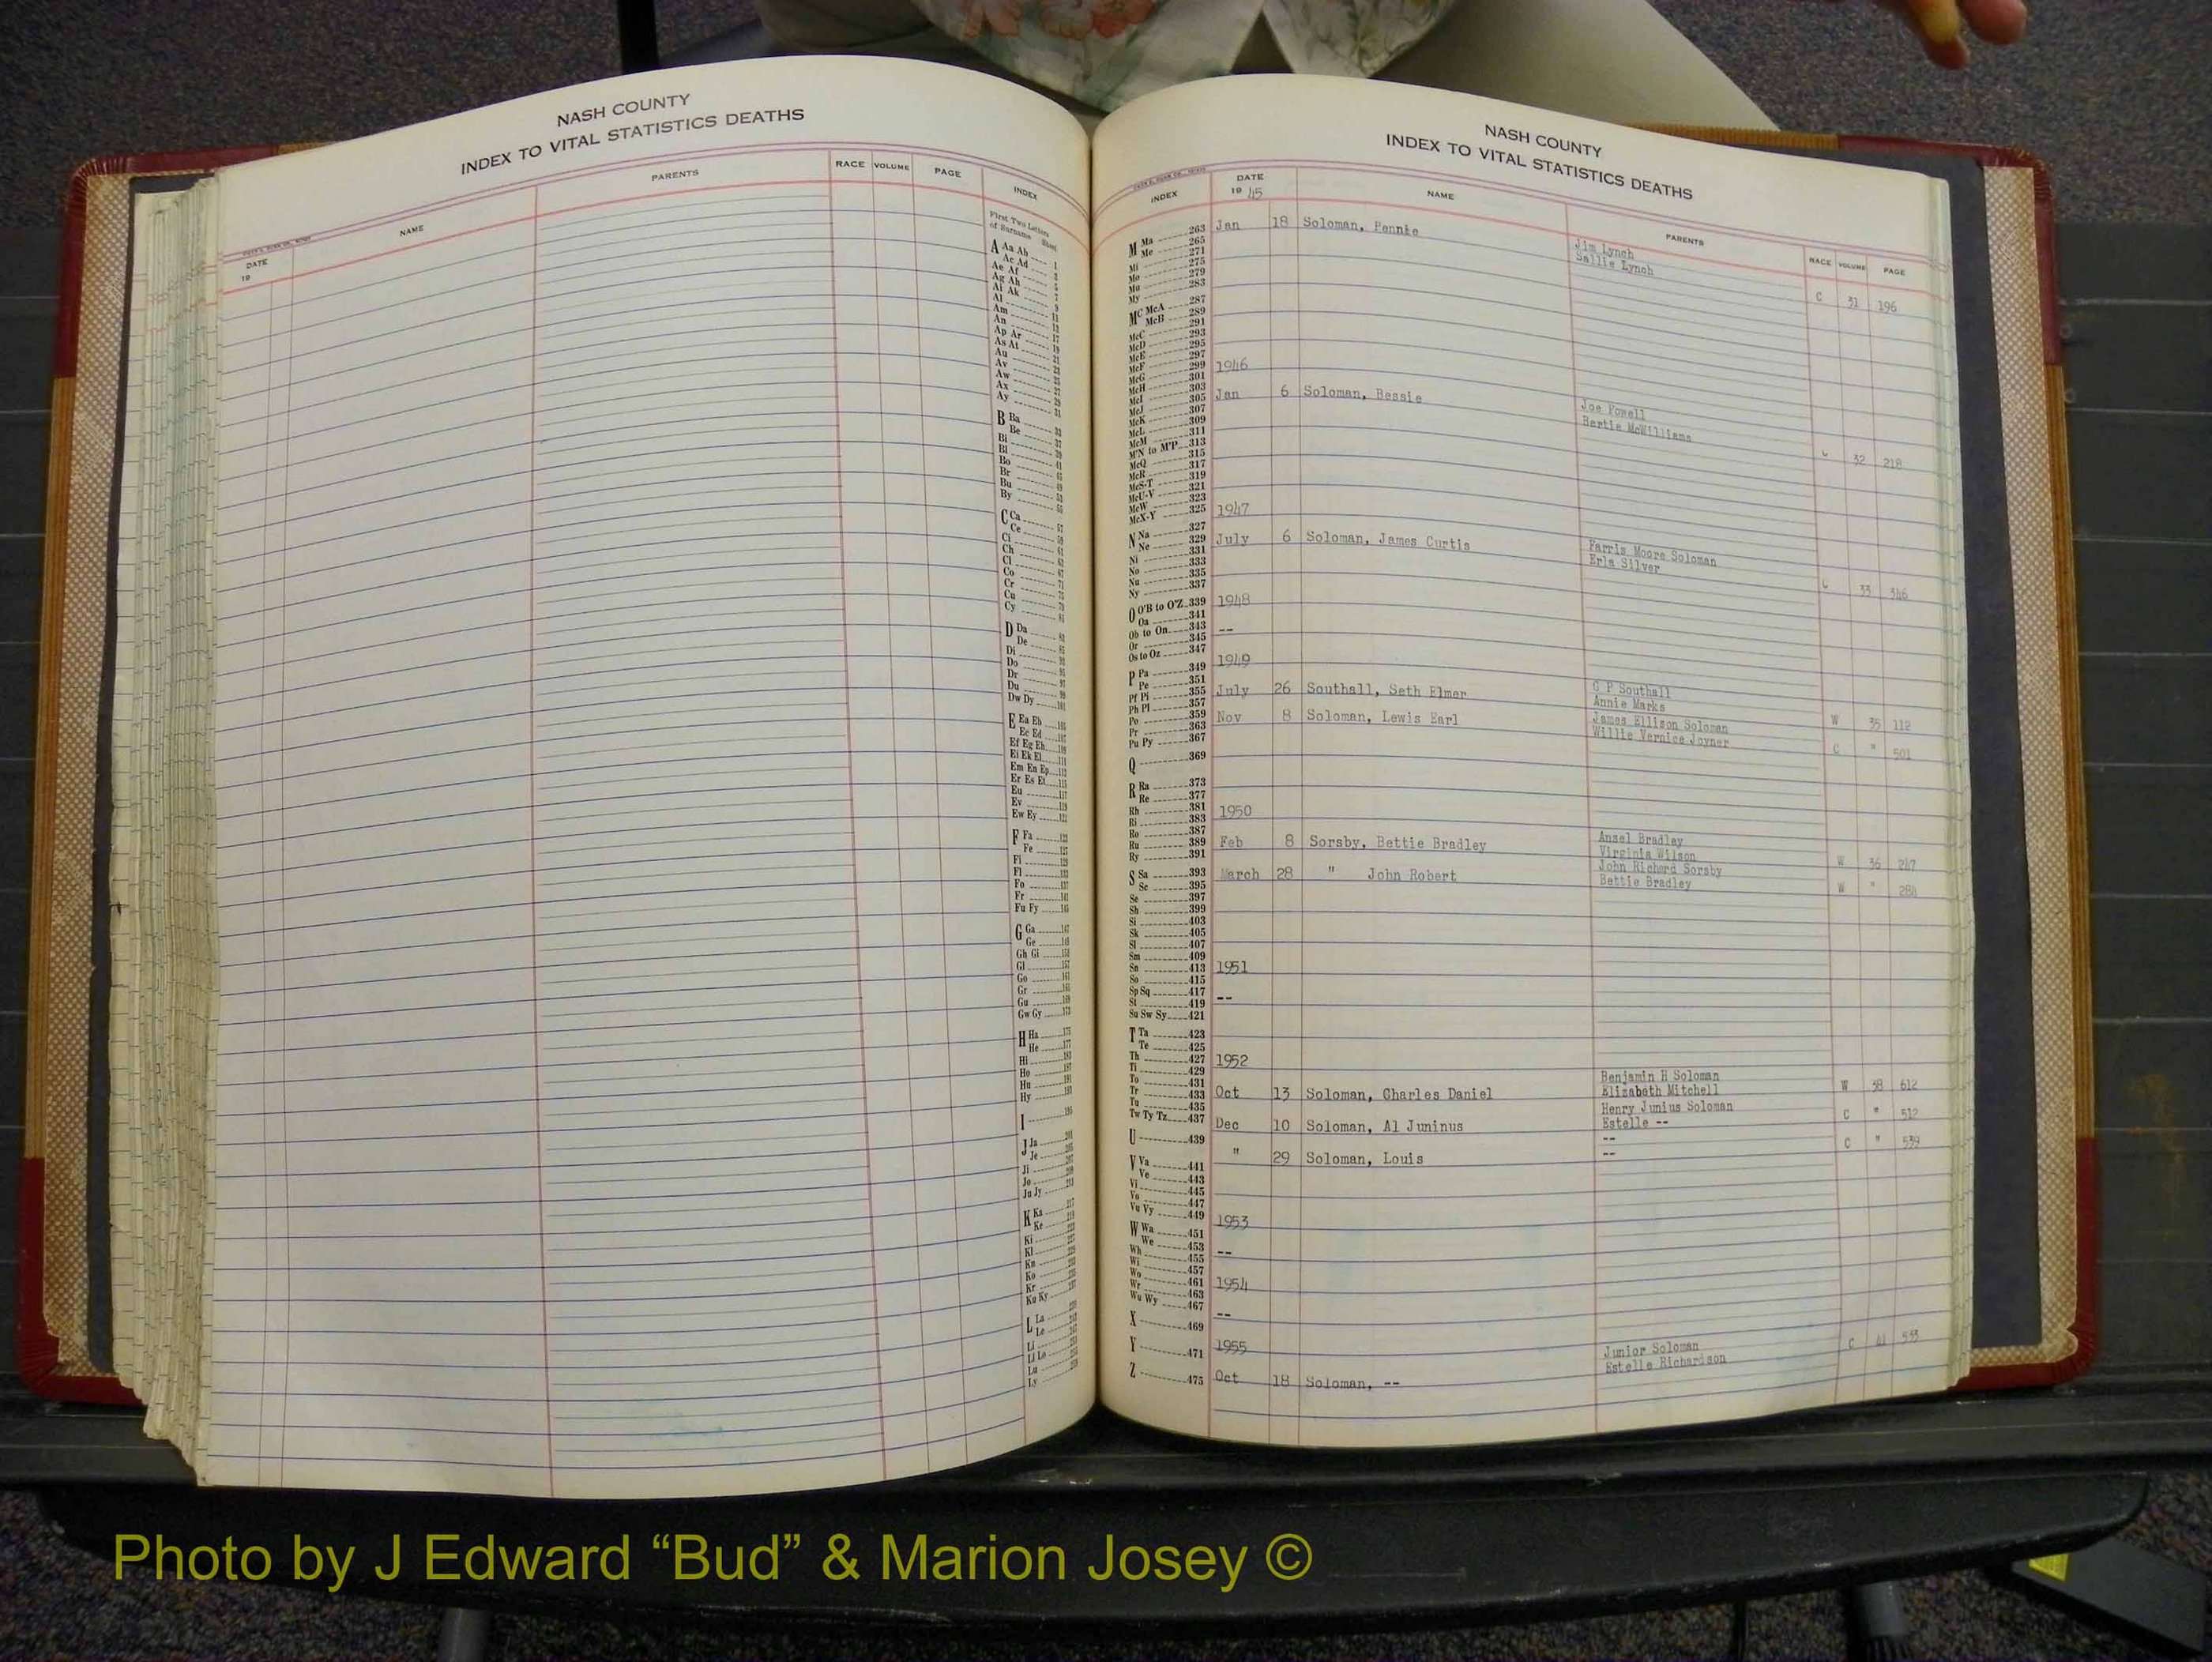 NASH COUNTY
INDEX TO VITAL STATISTICS DEATHS
DATE
19
NAME
PARENTS
RACE
VOLUME
PAGE
INDEX
First Two Letters
of Surname Sheet
A Aa Ab 1
Ac Ad 3
Ae Af 5
Ag Ah 7
Ai Ak 9
Al 11
Am 13
An 17
Ap Ar 19
As At 21
Au 23
Av 25
Aw
Ax
Ay 31
B Ba 33
Be 37
Bi 39
Bl
Bo
Br
Bu
By
C Ca
Ce
Ci
Ch
Cl
Co
Cr
Cu
Cy
D Da
De
Di
Do
Dr
Du
Dw Dy
E Ea Eb
Ec Ed
Ef Eg Eh
Ei Ek El
Em En Ep
Er Es Et
Eu
Ev
Ew Ey
F Fa
Fe
Fi
Fl
Fo
Fr
Fu Fy
G Ga
Ge
Gh Gi
Gl
Go
Gr
Gu
Gw Gy
H Ha
He
Hi
Ho
Hu
Hy
I
J Ja
Je
Ji
Jo
Ju Jy
K Ka
Ke
Ki
Kl
Kn
Ko
Kr
Ku Ky
L La
Le
Li
Ll Lo
Lu
Ly
NASH COUNTY
INDEX TO VITAL STATISTICS DEATHS
INDEX
DATE
19 45
NAME
PARENTS
RACE
VOLUME
PAGE
M Ma 263
Me 265
Mi 271
Mo 275
Mu 279
My 283
Mc McA 287
McB 289
McC 291
McD 293
McE 295
McF 297
McG 299
McH 301
McI 303
McJ 305
McK 307
McL 309
McM 311
M'N to M'P 313
McQ 315
McR 317
McS-T 319
McU-V 321
McW 323
McX-Y 325
N Na 327
Ne 329
Ni 331
No 333
Nu 335
Ny 337
O O'B to O'Z 339
Oa 341
Ob to On 343
Or 345
Os to Oz 347
P Pa 349
Pe 351
Pf Pi 355
Ph Pl 357
Po 359
Pr 363
Pu Py 367
Q 369
R Ra 373
Re 377
Rh 381
Ri 383
Ro 387
Ru 389
Ry 391
S Sa 393
Sc 395
Se 397
Sh 399
Si 403
Sk 405
Sl 407
Sm 409
Sn 413
So 415
Sp Sq 417
St 419
Su Sw Sy 421
T Ta 423
Te 425
Th 427
Ti 429
To 431
Tr 433
Tu 435
Tw Ty Tz 437
U 439
V Va 441
Ve 443
Vi 445
Vo 447
Vu Vy 449
W Wa 451
We 453
Wh 455
Wi 457
Wo 461
Wr 463
Wu Wy 467
X 469
Y 471
Z 475
Jan 18 Soloman, Pennie
Jim Lynch
Sallie Lynch
C 31 196
1946
Jan 6 Soloman, Bessie
Joe Powell
Bertie McWilliams
32 218
1947
July 6 Soloman, James Curtis
Farris Moore Soloman
Erla Silver
33 346
1948
--
1949
July 26 Southall, Seth Elmer
G P Southall
Annie Marks
W 35 112
Nov 8 Soloman, Lewis Earl
James Ellison Soloman
Willie Vernice Joyner
C " 501
1950
Feb 8 Sorsby, Bettie Bradley
Ansel Bradley
Virginia Wilson
W 36 247
March 28 " John Robert
John Richard Sorsby
Bettie Bradley
W " 284
1951
--
1952
Oct 13 Soloman, Charles Daniel
Benjamin H Soloman
Elizabeth Mitchell
W 38 612
Dec 10 Soloman, Al Juninus
Henry Junius Soloman
Estelle --
C " 512
" 29 Soloman, Louis
--
--
C " 539
1953
--
1954
--
1955
Oct 18 Soloman, --
Junior Soloman
Estelle Richardson
C 41 533
Photo by J Edward “Bud” & Marion Josey ©